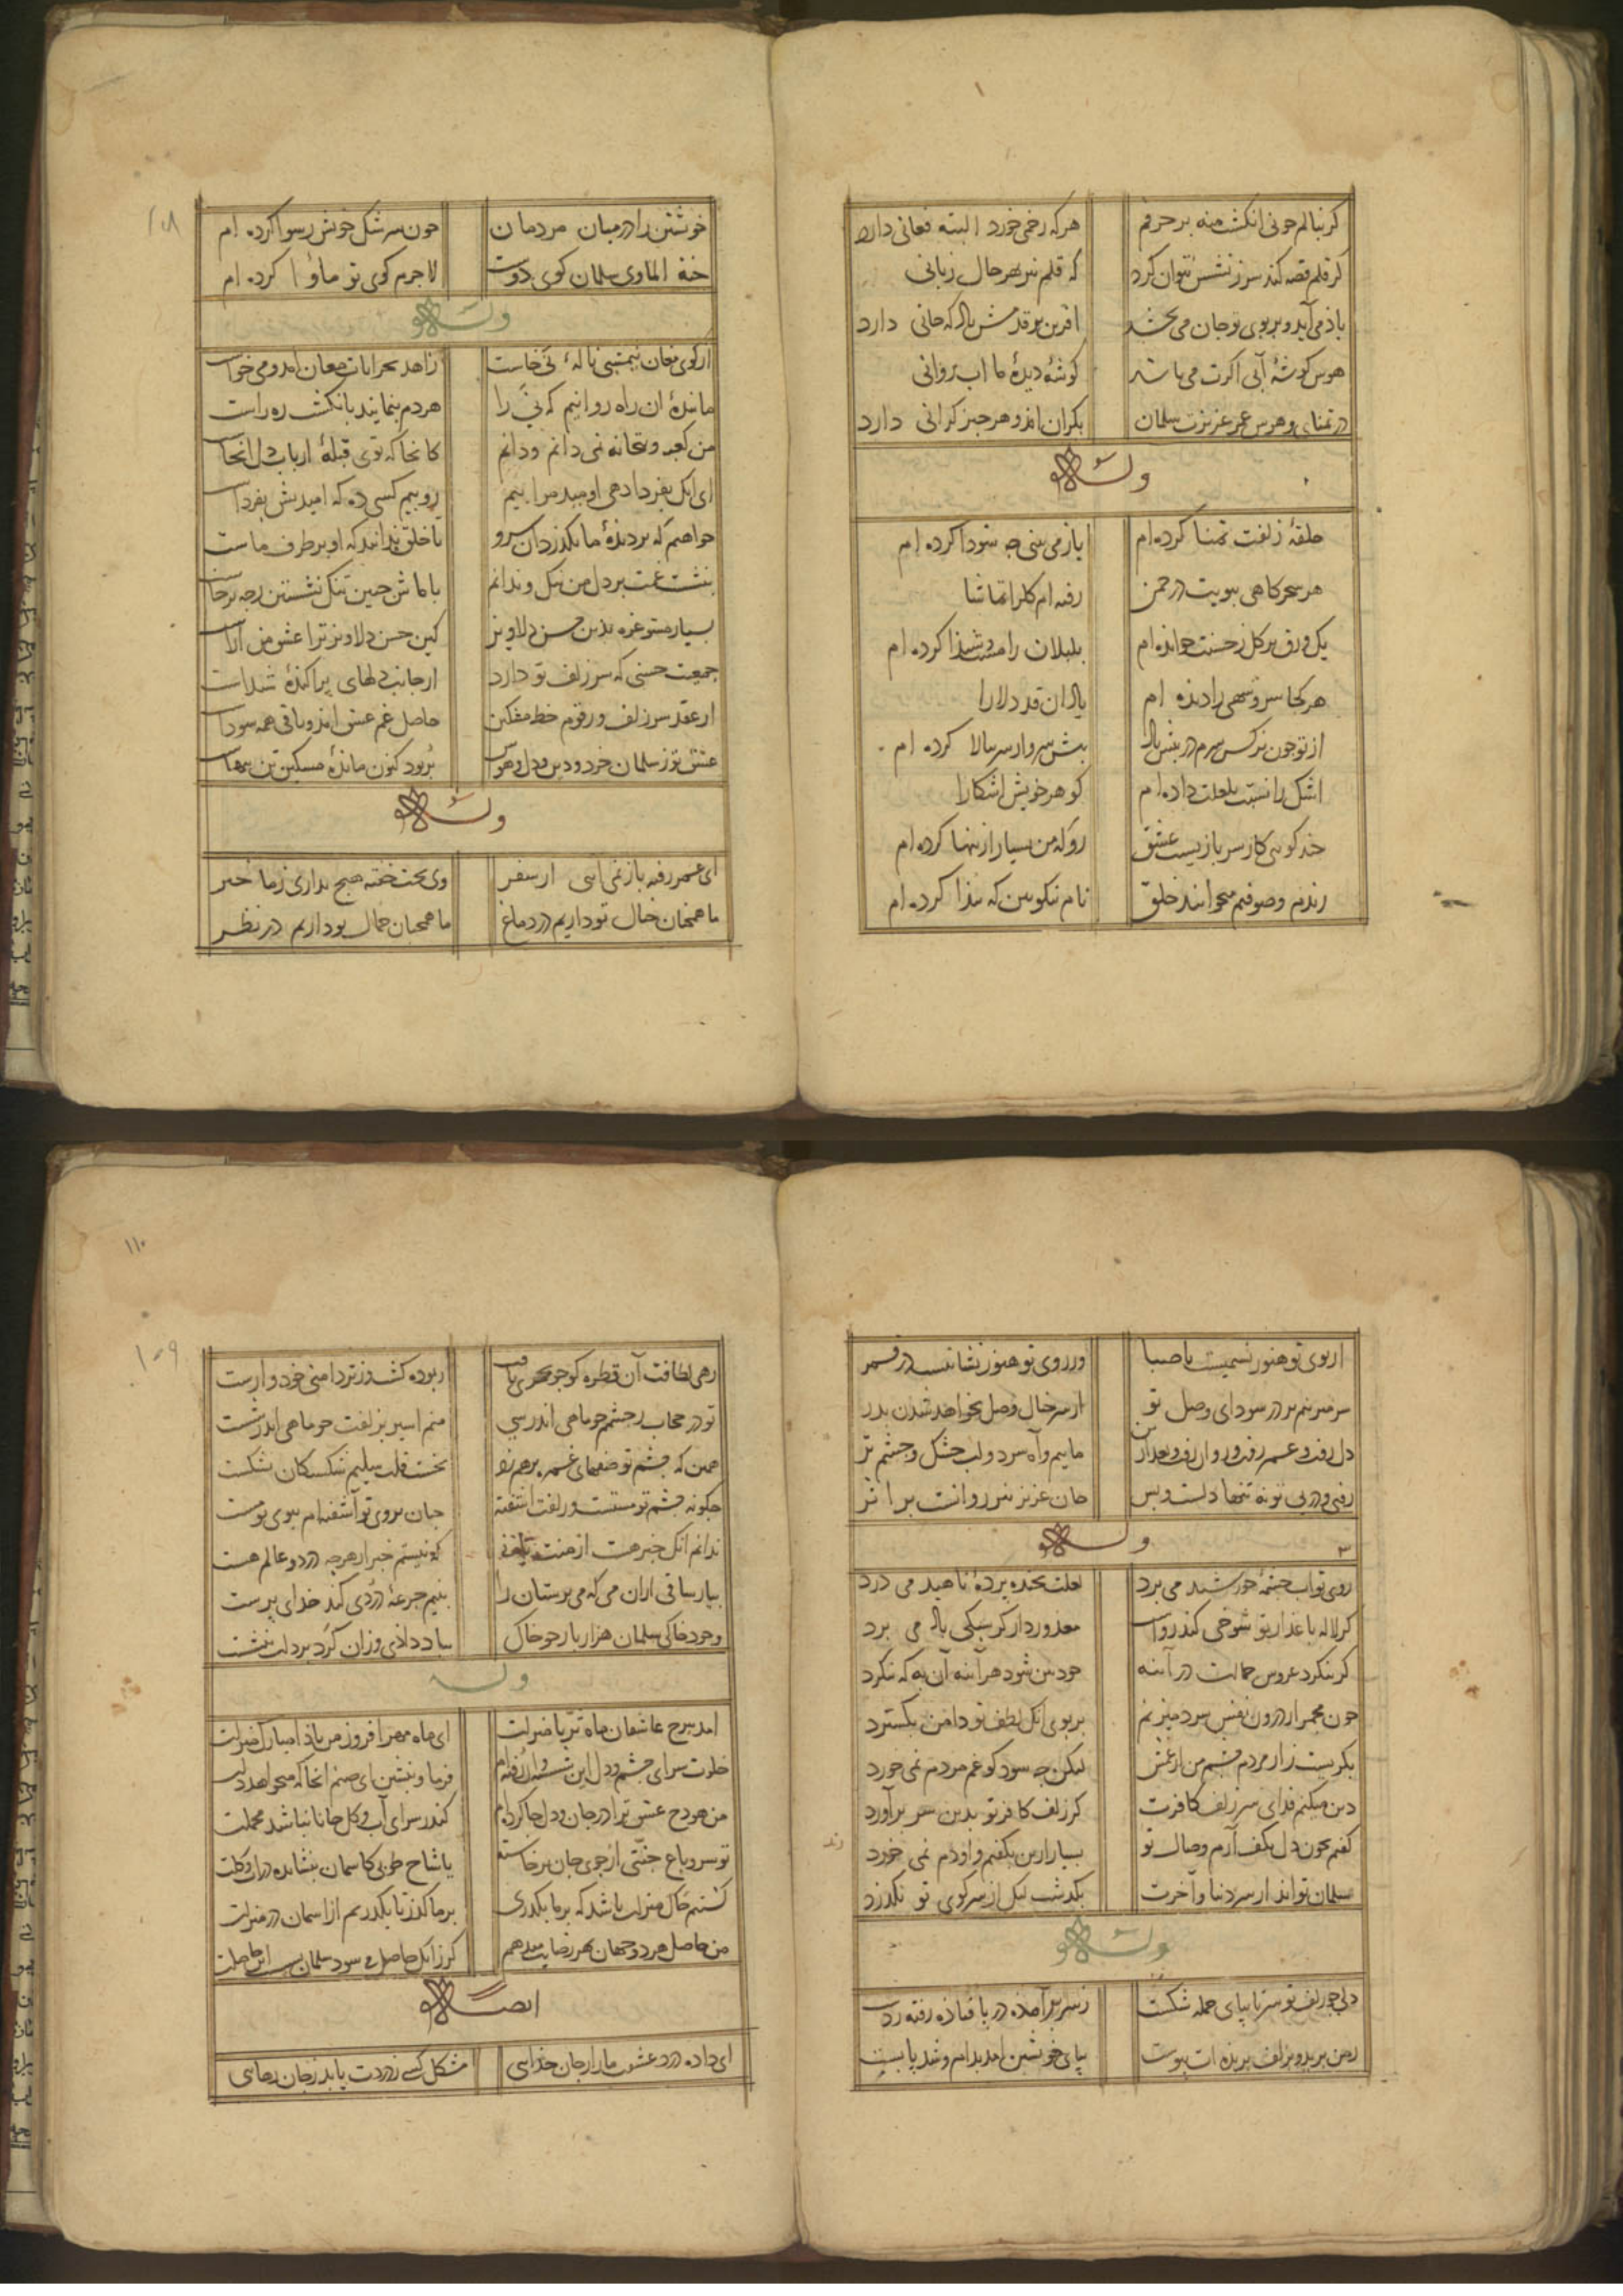 کر بنالم جونی انکشت منه بر حرفم هرکه زخمی خورد البته فغانی دارد
کر قلم قصه کند سرزنشش نتوان کرد که قلم نیز بهر حال زبانی
باد می آید و بر بوی تو جان می بخشد افرین بر قدمش باد که جانی دارد
هوس کوشهٔ آبی اکرت می باشد کوشهٔ دیدهٔ ما اب روانی
در تمنای و هوس عمر عزیزت سلمان بکران امد و هر جیز کرانی دارد
وله
حلقهٔ زلفت تمنا کرده ام باز می بینی جه سودا کرده ام
هر سحرکاهی ببویت در جمن رفته ام کل را تماشا
یک ورق بر کل ز حسنت خوانده ام بلبلان را مست و شیدا کرده ام
هر کجا سرو سهی را دیده ام یاد ان قد دلارا
از تو جون نرکس سرم در بیش باد بیش سرو ار سر ببالا کرده ام
اشک را نسبت بلعلت داده ام کوهر خویش اشکارا
جند کویی کار سربازیست عشق رو که من بسیار ازینها کرده ام
رندم و صوفیم میخوانند خلق نام نیکو بین که بیدا کرده ام
خوشتن را در میان مردمان جون سرشک خوش رسوا کرده ام
جنة الماوی سلمان کوی دوست لاجرم کوی تو ماوا کرده ام
وله
از کوی مغان نیمشبی نالهٔ نی خاست زاهد بخرابات مغان امد و می خواست
ما بندهٔ ان راه روانیم که نی را هر دم بنمایند بانکشت ره راست
من کعبه و بتخانه نمی دانم و دانم کانجا که توی قبلهٔ ارباب دل انجاست
ای انک بفردا دهی اومید مرا بیم رو بیم کسی ده که امیدش بفرداست
خواهم که بر دیدهٔ ما بکذرد ان سرو تا خلق بدانند که او بر طرف ماست
بنشست غمت بر دل من تنک و ندانم با ما ش جنین تنک نشستن ز جه برخاست
بسیار مشو غره بدین حسن دلاویز کین حسن دلاویز ترا عشق من آراست
جمعیت حسنی که سر زلف تو دارد از جانب دلهای پراکندهٔ شیداست
از عقد سر زلف و رقوم خط مشکین حاصل غم عشق امد و باقی همه سوداست
عشق تو ز سلمان خرد و دین و دل و هوش بربود کنون مانده مسکین تن تنهاست
وله
ای عمر رفته باز نمی ایی از سفر وی بخت خفته هیج نداری ز ما خبر
ما همجنان خیال تو داریم در دماغ ما همجنان جمال تو داریم در نظر
از بوی تو هنوز نسیمیست با صبا وز روی تو هنوز نشانیست در قمر
سر میرنم بر در سودای وصل تو از سر خیال وصل نخواهد شدن بدر
دل رفت و عمر رفت و روان رفت و بعد ازین ماییم و آه سرد و لب خشک و جشم تر
رفتی و در پی تو نه تنها دلست و بس جان عزیز نیز روانست بر اثر
وله
روی تو اب جشمهٔ خورشید می برد لعلت بخنده بردهٔ ناهید می درد
کر لاله با عذار تو شوخی کند رواست معذور دار کز سبکی باد می برد
کر بنکرد عروس جمالت در آینه خودبین شود هر آینه آن به که ننکرد
جون مجمر از درون نفس سرد میزنم بر بوی انک لطف تو دامن بکسترد
بکریست زار مردم جشم من از غمش لیکن جه سود کو غم مردم نمی خورد
دین میکنم فدای سر زلف کافرت کر زلف کافر تو بدین سر برآورد
کفتم بخون دل بکف آرم وصال تو بسیار ازین بکفتم و او دم نمی خورد
سلمان تواند از سر دنیا و آخرت بکذشت لیک از سر کوی تو نکذرد
وله
دلی جو زلف تو سر تا بپای جمله شکست ز سر برآمده در با فتاده رفته ز دست
ز من برید و بزلف بریده ات پیوست بپای خویشتن امد بدام و شد پابست
زهی لطافت آن قطره کو جو مهری یافت ربوده کشت و ز تردامنی خود وارست
تو در حجاب ز جشمم جو ماهی اندر پی منم اسیر بزلفت جو ماهی اندر شست
همین که جشم تو صفهای غمزه برهم زد نخست قلب سلیم شکستکان شکست
جکونه جشم تو مستست و زلفت اشفته جان بروی تو آشفته ام ببوی تو مست
ندانم انک خبر هست از منت یا نه که نیستم خبر از هرجه در دو عالم هست
بیار ساقی ازان می که می برستان را بنیم جرعهٔ دردی کند خدای برست
وجود خاکی سلمان هزار بار جو خاک بباد دادی وزان کرد بر دلت ننشست
وله
امد ببرج عاشقان ماه تریا منزلت ای ماه مهرافروز من بادا مبارک منزلت
خلوت سرای جشم و دل این شسته وان رفته ام فرما و بنشین ای صنم انجا که میخواهد دلت
من هودج عشق ترا در جان و دل جا کرده ام کندر سرای آب و کل جانا نباشد محملت
تو سرو باغ جنتی از جوی جان برخاسته یا شاخ طوبی کاسمان بنشانده در اب و کلت
کشتم خاک منزلت باشد که بر ما بکذری بر ما کذر تا بکذریم از اسمان در منزلت
من حاصل هر دو جهان بهر رضایت میدهم کر زانک حاصل می سود سلمان بس این حاصلت
ایضا له
ای داده درد عشقت ما را ز جان جدایی مشکل کسی ز دردت یابد ز جان رهایی